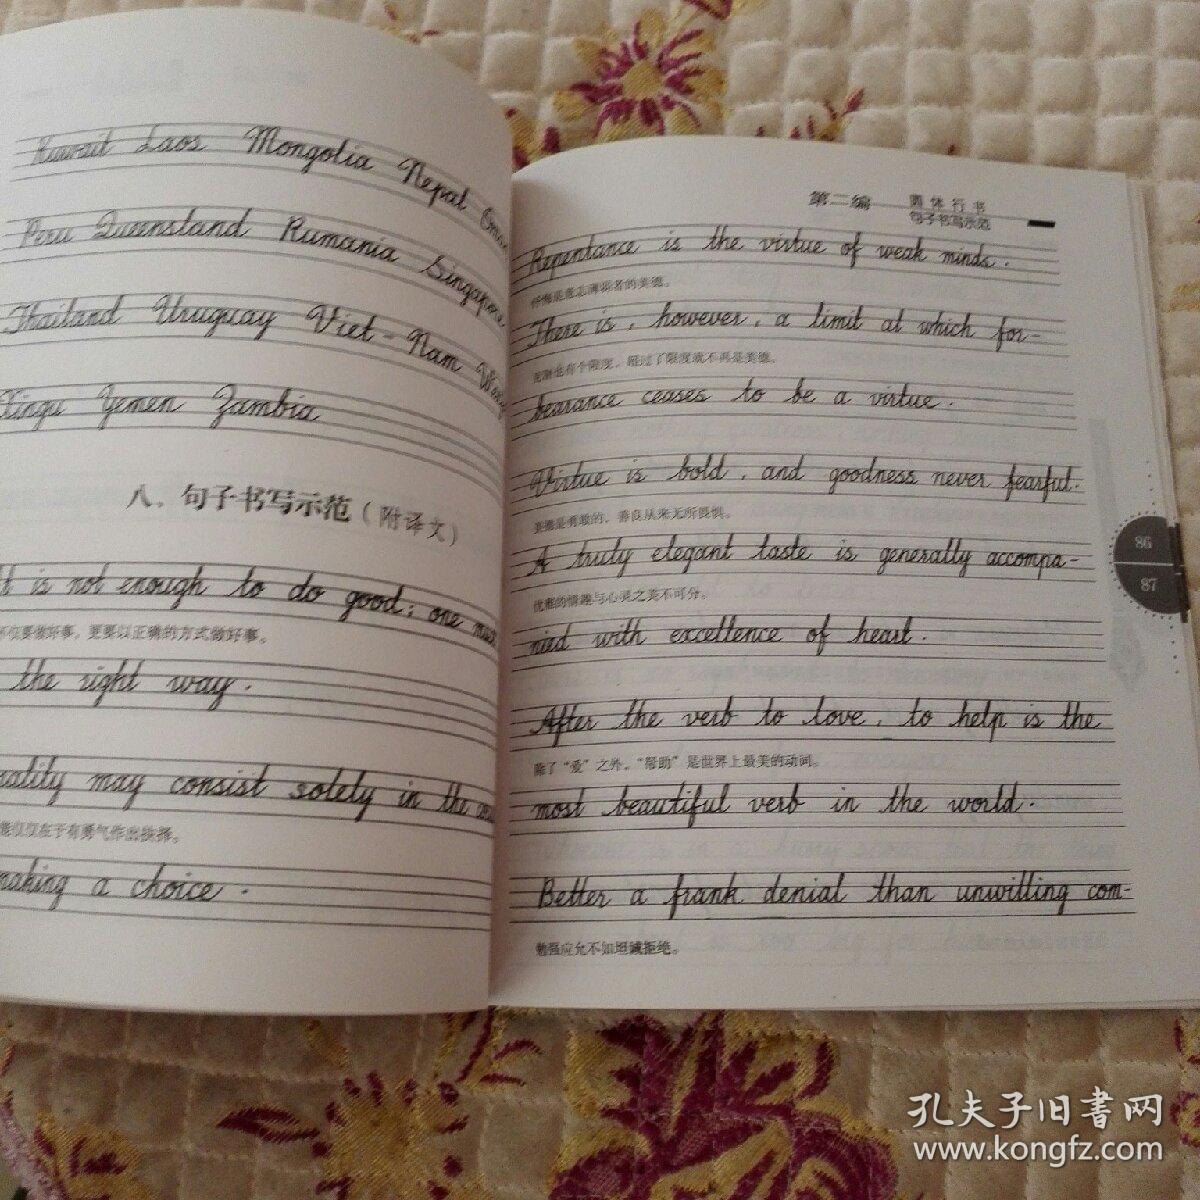 Kuwait Laos Mongolia Nepal
Peru Queensland Rumania Singapore
Thailand Uruguay Viet-Nam
Yemen Zambia
八、句子书写示范(附译文)
is not enough to do good; one must
要做好事，更要以正确的方式做好事。
the right way.
may consist solely in the
在于有勇气作出抉择。
making a choice.
第二编
圆体行书
句子书写示范
Repentance is the virtue of weak minds.
忏悔是意志薄弱者的美德。
There is, however, a limit at which for-
忍耐也有个限度，超过了限度就不再是美德。
bearance ceases to be a virtue.
Virtue is bold, and goodness never fearful.
美德是勇敢的，善良从来无所畏惧。
A truly elegant taste is generally accompa-
优雅的情趣与心灵之美不可分。
nied with excellence of heart.
After the verb to love, to help is the
除了“爱”之外，“帮助”是世界上最美的动词。
most beautiful verb in the world.
Better a frank denial than unwilling com-
勉强应允不如坦诚拒绝。
86
87
孔夫子旧书网
www.kongfz.com